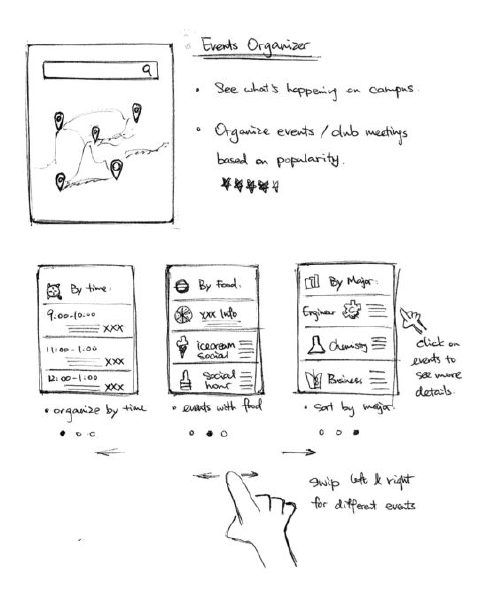 Events Organizer
• See what's happening on campus.
• Organize events / club meetings
based on popularity.
By time.
9:00-10:00
XXX
11:00-1:00
XXX
12:00-1:00
XXX
• organize by time
By Food.
XXX Info
icecream
social
Social
hour
• events with food
By Major.
Engineer
Chemistry
Business
• Sort by major.
click on
events to
see more
details.
swip left & right
for different events